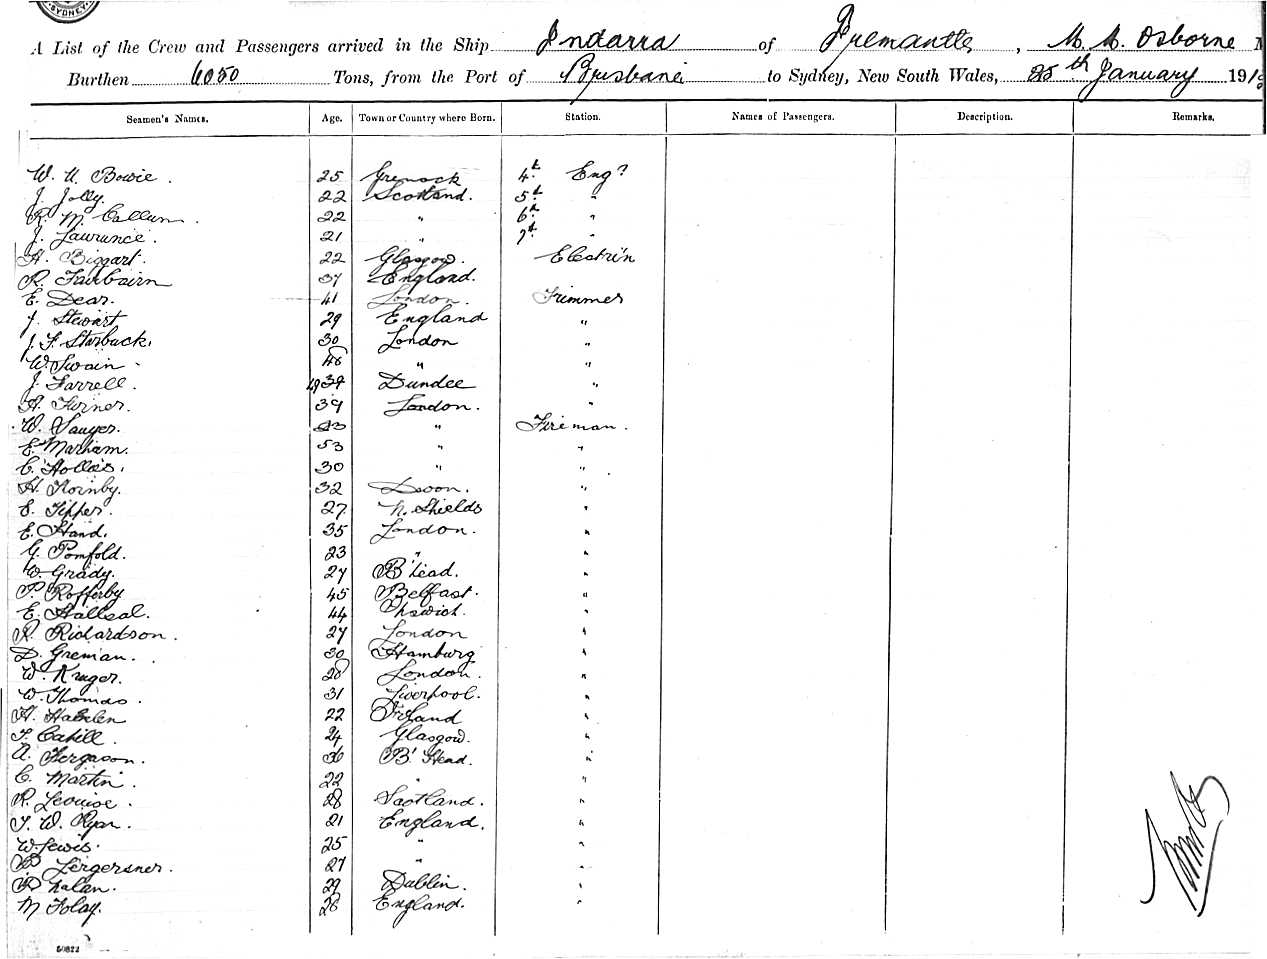 SYDNEY
A List of the Crew and Passengers arrived in the Ship Indarra of Fremantle, M. M. Osborne
Burthen 6050 Tons, from the Port of Brisbane to Sydney, New South Wales, 25th January 191
Seamen's Names. Age. Town or Country where Born. Station. Names of Passengers. Description. Remarks.
W. U. Bowie. 25 Grenock 4th Eng?
J. Jolly. 22 Scotland. 5th "
R. McCallum. 22 " 6th "
J. Laurence. 21 " 7th "
A. Biggart. 22 Glasgow. Electri'n
R. Fairbairn 37 England.
E. Dear. 41 London. Trimmer
J. Stewart 29 England "
J. F. Starbuck. 30 London "
W. Swain 48 " "
J. Farrell. 39 Dundee "
A. Turner. 39 London. "
W. Sawyer. 43 " Fireman.
E. Marham. 53 " "
C. Hollas. 30 " "
H. Hornby. 32 Devon. "
E. Tipper. 27 N. Shields "
E. Hand. 35 London. "
G. Pomfold. 23 " "
W. Grady. 27 B'head. "
P. Rofferby 45 Belfast. "
E. Hallsal. 44 Ipswich. "
R. Richardson. 27 London "
D. Greman. 30 Hamburg "
W. Kruger. 28 London. "
W. Thomas. 31 Liverpool. "
H. Hablen 22 Ireland "
T. Cahill. 24 Glasgow. "
A. Fergason. 36 B'Head. "
C. Martin. 22 " "
R. Leouise. 28 Scotland. "
T. W. Ryan. 21 England. "
W. Lewis. 25 " "
B. Jergersner. 27 " "
P. halan. 29 Dublin. "
M Folay. 28 England. "
50822